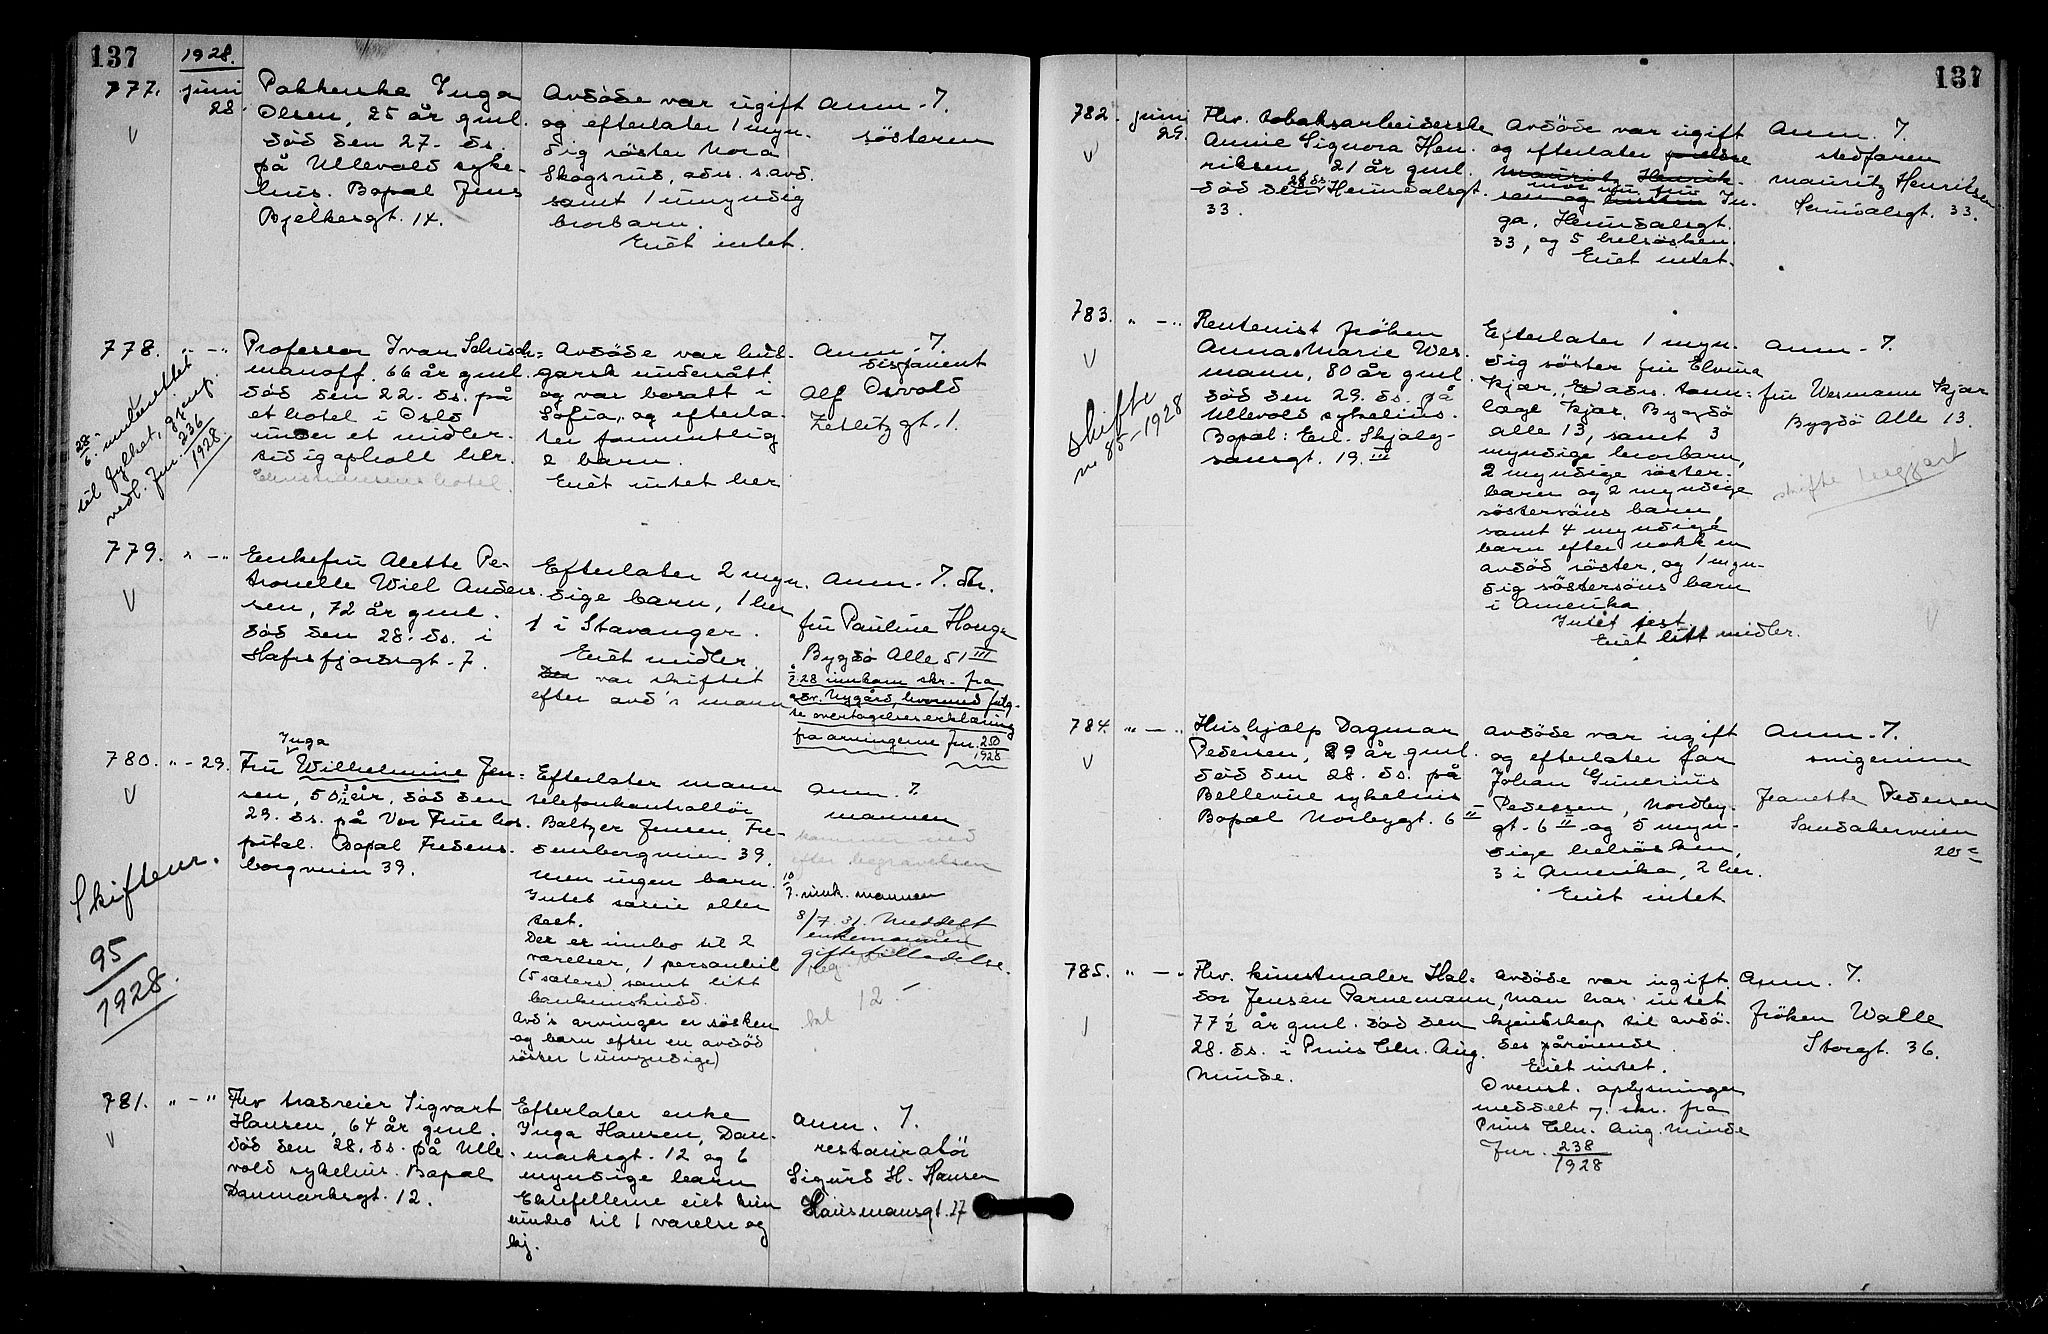 137
1928.
777. juni 28.
Pakkerske Inga
Olsen, 25 år gml.
död den 27. ds.
på Ullevold syke-
hus. Bopæl Jens
Bjelkesgt. 14.
Avdöde var ugift
og efterlater 1 myn-
dig söster Nora
Skogsrud, adr. s. avd.
samt 1 umyndig
brorbarn.
Eiet intet.
Anm. 7.
søsteren
778. " - "
Professor Ivan Schisch=
manoff. 66 år gml.
död den 22. ds. på
et hotel i Oslo
under et midler-
tidig ophold her.
Christiansens hotel.
Avdöde var bul-
garsk undersått
og var bosatt i
Sofia, og efterla-
ter formentlig
2 barn.
Eiet intet her
Anm. 7.
disponent
Alf Osvold
Zetlitzgt. 1.
28/6. underrettet
til fylket, gjenp.
vedl. Jnr. 236/1928.
779. " - "
Enkefru Alette Pe-
tronelle Wiel Anders-
sen, 72 år gml.
död den 28. ds. i
Hafrsfjordsgt. 7.
Efterlater 2 myn-
dige barn, 1 her
1 i Stavanger.
Eiet midler.
Der var skiftet
efter avd's mann
Anm. 7. dtr.
fru Pauline Houge
Bygdö Alle 51 III
28 innkom skr. fra
adv. Nygård, hvormed fulg-
te overtagelseserklæring
fra arvingerne Jnr. 20/1928
780. " - 29.
Inga
Fru Wilhelmine Jen=
sen, 50 3/12 år, död den
29. ds. på Vor Frue hos-
pital. Bopæl Fredens-
borgveien 39.
Efterlater mann
telefonkontrollör
Baltzer Jensen, Fre-
densborgveien 39,
men ingen barn.
Intet særeie eller
test.
Der er innbo til 2
værelser, 1 personbil
(5 seters) samt litt
bankinnskudd.
Avd's arvinger er sösken
og barn efter en avdöd
söster (umyndige)
Anm. 7.
mannen
kommer ned
efter begravelsen
10/7. innk. mannen
8/7 31. Meddelt
enkemannen
giftetilladelse.
12.-
Skiftenr.
95/1928.
781. " - "
Fhv trædreier Sigvart
Hansen, 64 år gml.
död den 28. ds. på Ulle-
vold sykehus. Bopæl
Danmarksgt. 12.
Efterlater enke
Inga Hansen, Dan-
marksgt. 12 og 6
myndige barn
Ektefellerne eiet kun
innbo til 1 værelse og
kj.
Anm. 7.
restauratör
Sigurd H. Hansen
Hausmansgt. 27
137
782. juni 29.
Fhv. tobaksarbeiderske
Annie Signora Hen-
riksen, 21 år gml.
död den 28 ds. Heimdalsgt.
33.
Avdöde var ugift
og efterlater foreldre
Mauritz Henrik-
mor nu fru
sen og hustru In-
ga, Heimdalsgt.
33, og 5 helsösken.
Eiet intet.
Anm. 7.
stedfaren
Mauritz Henriksen
Heimdalsgt. 33.
783. " - "
Rentenist fröken
Anna Marie Wes-
mann, 80 år gml.
död den 29. ds. på
Ullevold sykehus.
Bopæl: Erl. Skjalg-
sonsgt. 19. III
Efterlater 1 myn-
dig söster fru Elvina
Kjær, adr. tann-
læge Kjær, Bygdö
alle 13, samt 3
myndige brorbarn,
2 myndige söster-
barn og 2 myndige
söstersöns barn
samt 4 myndige
barn efter nok en
avdöd söster, og 1 myn-
dig söstersöns barn
i Amerika
Intet test.
Eiet litt midler.
Anm. 7.
fru Wesmann Kjær
Bygdö Alle 13.
skifte begjært
skifte
nr 85-1928
784. " - "
Hushjælp Dagmar
Pedersen, 29 år gml.
död den 28. ds. på
Bellevue sykehus
Bopæl Norbygt. 6 II
Avdöde var ugift
og efterlater far
Johan Gunerius
Pedersen, Nordby-
gt. 6 II og 5 myn-
dige helsösken,
3 i Amerika, 2 her.
Eiet intet
Anm. 7.
svigerinne
Jeanette Pedersen
Sandakerveien
20 c
785. " - "
Fhv. kunstmaler Hal=
dor Jensen Parnemann,
77 1/2 år gml. död den
28. ds. i Prins Chr. Aug.
Minde.
Avdöde var ugift.
man har intet
kjendskap til avdö-
des pårörende.
Eiet intet.
Ovenst. oplysninger
meddelt 7. skr. fra
Prins Chr. Aug. Minde
Jnr. 238/1928
Anm. 7.
fröken Walle
Storgt. 36.